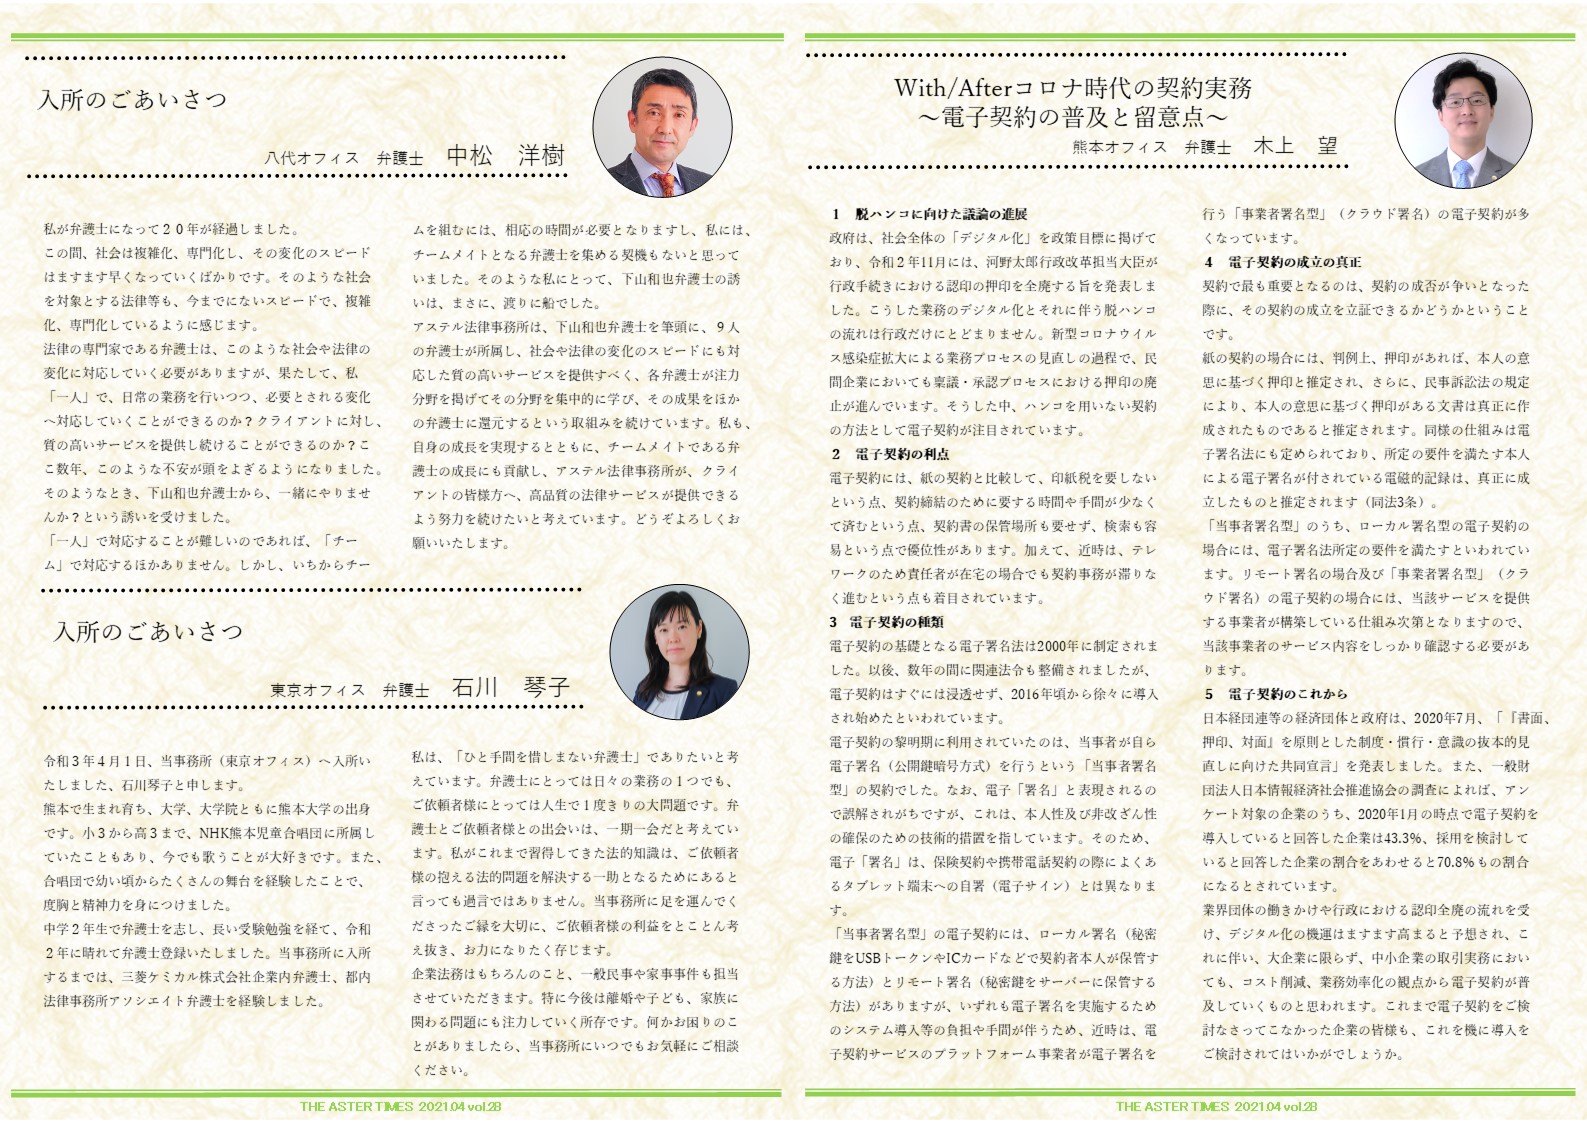 入所のごあいさつ
八代オフィス　弁護士　中松　洋樹
私が弁護士になって２０年が経過しました。
この間、社会は複雑化、専門化し、その変化のスピード
はますます早くなっていくばかりです。そのような社会
を対象とする法律等も、今までにないスピードで、複雑
化、専門化しているように感じます。
法律の専門家である弁護士は、このような社会や法律の
変化に対応していく必要がありますが、果たして、私
「一人」で、日常の業務を行いつつ、必要とされる変化
へ対応していくことができるのか？クライアントに対し、
質の高いサービスを提供し続けることができるのか？こ
こ数年、このような不安が頭をよぎるようになりました。
そのようなとき、下山和也弁護士から、一緒にやりませ
んか？という誘いを受けました。
「一人」で対応することが難しいのであれば、「チー
ム」で対応するほかありません。しかし、いちからチー
ムを組むには、相応の時間が必要となりますし、私には、
チームメイトとなる弁護士を集める契機もないと思って
いました。そのような私にとって、下山和也弁護士の誘
いは、まさに、渡りに船でした。
アステル法律事務所は、下山和也弁護士を筆頭に、９人
の弁護士が所属し、社会や法律の変化のスピードにも対
応した質の高いサービスを提供すべく、各弁護士が注力
分野を掲げてその分野を集中的に学び、その成果をほか
の弁護士に還元するという取組みを続けています。私も、
自身の成長を実現するとともに、チームメイトである弁
護士の成長にも貢献し、アステル法律事務所が、クライ
アントの皆様方へ、高品質の法律サービスが提供できる
よう努力を続けたいと考えています。どうぞよろしくお
願いいたします。
入所のごあいさつ
東京オフィス　弁護士　石川　琴子
令和３年４月１日、当事務所（東京オフィス）へ入所い
たしました、石川琴子と申します。
熊本で生まれ育ち、大学、大学院ともに熊本大学の出身
です。小３から高３まで、NHK熊本児童合唱団に所属し
ていたこともあり、今でも歌うことが大好きです。また、
合唱団で幼い頃からたくさんの舞台を経験したことで、
度胸と精神力を身につけました。
中学２年生で弁護士を志し、長い受験勉強を経て、令和
２年に晴れて弁護士登録いたしました。当事務所に入所
するまでは、三菱ケミカル株式会社企業内弁護士、都内
法律事務所アソシエイト弁護士を経験しました。
私は、「ひと手間を惜しまない弁護士」でありたいと考
えています。弁護士にとっては日々の業務の１つでも、
ご依頼者様にとっては人生で１度きりの大問題です。弁
護士とご依頼者様との出会いは、一期一会だと考えてい
ます。私がこれまで習得してきた法的知識は、ご依頼者
様の抱える法的問題を解決する一助となるためにあると
言っても過言ではありません。当事務所に足を運んでく
ださったご縁を大切に、ご依頼者様の利益をとことん考
え抜き、お力になりたく存じます。
企業法務はもちろんのこと、一般民事や家事事件も担当
させていただきます。特に今後は離婚や子ども、家族に
関わる問題にも注力していく所存です。何かお困りのこ
とがありましたら、当事務所にいつでもお気軽にご相談
ください。
THE ASTER TIMES 2021.04 vol.28
With/Afterコロナ時代の契約実務
～電子契約の普及と留意点～
熊本オフィス　弁護士　木上　望
１　脱ハンコに向けた議論の進展
政府は、社会全体の「デジタル化」を政策目標に掲げて
おり、令和２年11月には、河野太郎行政改革担当大臣が
行政手続きにおける認印の押印を全廃する旨を発表しま
した。こうした業務のデジタル化とそれに伴う脱ハンコ
の流れは行政だけにとどまりません。新型コロナウイル
ス感染症拡大による業務プロセスの見直しの過程で、民
間企業においても稟議・承認プロセスにおける押印の廃
止が進んでいます。そうした中、ハンコを用いない契約
の方法として電子契約が注目されています。
２　電子契約の利点
電子契約には、紙の契約と比較して、印紙税を要しない
という点、契約締結のために要する時間や手間が少なく
て済むという点、契約書の保管場所も要せず、検索も容
易という点で優位性があります。加えて、近時は、テレ
ワークのため責任者が在宅の場合でも契約事務が滞りな
く進むという点も着目されています。
3　電子契約の種類
電子契約の基礎となる電子署名法は2000年に制定されま
した。以後、数年の間に関連法令も整備されましたが、
電子契約はすぐには浸透せず、2016年頃から徐々に導入
され始めたといわれています。
電子契約の黎明期に利用されていたのは、当事者が自ら
電子署名（公開鍵暗号方式）を行うという「当事者署名
型」の契約でした。なお、電子「署名」と表現されるの
で誤解されがちですが、これは、本人性及び非改ざん性
の確保のための技術的措置を指しています。そのため、
電子「署名」は、保険契約や携帯電話契約の際によくあ
るタブレット端末への自署（電子サイン）とは異なりま
す。
「当事者署名型」の電子契約には、ローカル署名（秘密
鍵をUSBトークンやICカードなどで契約者本人が保管す
る方法）とリモート署名（秘密鍵をサーバーに保管する
方法）がありますが、いずれも電子署名を実施するため
のシステム導入等の負担や手間が伴うため、近時は、電
子契約サービスのプラットフォーム事業者が電子署名を
行う「事業者署名型」（クラウド署名）の電子契約が多
くなっています。
４　電子契約の成立の真正
契約で最も重要となるのは、契約の成否が争いとなった
際に、その契約の成立を立証できるかどうかということ
です。
紙の契約の場合には、判例上、押印があれば、本人の意
思に基づく押印と推定され、さらに、民事訴訟法の規定
により、本人の意思に基づく押印がある文書は真正に作
成されたものであると推定されます。同様の仕組みは電
子署名法にも定められており、所定の要件を満たす本人
による電子署名が付されている電磁的記録は、真正に成
立したものと推定されます（同法3条）。
「当事者署名型」のうち、ローカル署名型の電子契約の
場合には、電子署名法所定の要件を満たすといわれてい
ます。リモート署名の場合及び「事業者署名型」（クラ
ウド署名）の電子契約の場合には、当該サービスを提供
する事業者が構築している仕組み次第となりますので、
当該事業者のサービス内容をしっかり確認する必要があ
ります。
５　電子契約のこれから
日本経団連等の経済団体と政府は、2020年7月、「『書面、
押印、対面』を原則とした制度・慣行・意識の抜本的見
直しに向けた共同宣言」を発表しました。また、一般財
団法人日本情報経済社会推進協会の調査によれば、アン
ケート対象の企業のうち、2020年1月の時点で電子契約を
導入していると回答した企業は43.3%、採用を検討して
いると回答した企業の割合をあわせると70.8%もの割合
になるとされています。
業界団体の働きかけや行政における認印全廃の流れを受
け、デジタル化の機運はますます高まると予想され、こ
れに伴い、大企業に限らず、中小企業の取引実務におい
ても、コスト削減、業務効率化の観点から電子契約が普
及していくものと思われます。これまで電子契約をご検
討なさってこなかった企業の皆様も、これを機に導入を
ご検討されてはいかがでしょうか。
THE ASTER TIMES 2021.04 vol.28